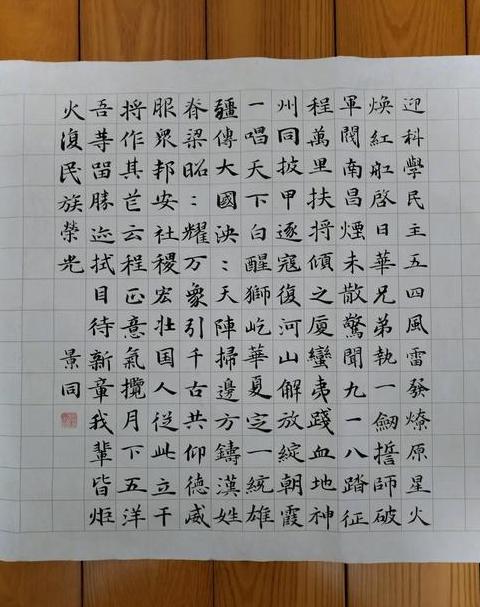 迎科學民主五四風雷發燎原星火
焕紅舡啓日華兄弟執一劒誓師破
軍閥南昌煙未散驚聞九一八踏征
程萬里扶将傾之厦蠻夷踐血地神
州同披甲逐寇復河山解放綻朝霞
一唱天下白醒獅屹華夏定一統雄
疆傳大國泱：天陣掃邊方鑄漢姓
脊梁昭：耀万象引千古共仰德威
服眾邦安社稷宏壮国人從此立千
将作其芒云程正意氣攬月下五洋
吾等留勝迹拭目待新章我輩皆炬
火復民族榮光 景同